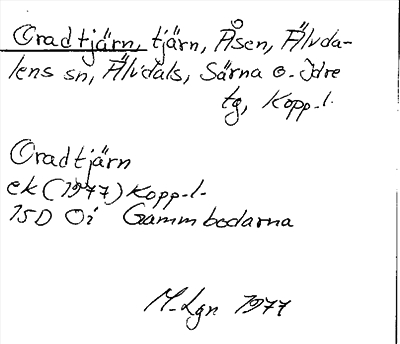 Oradtjärn, tjärn, Åsen, Älvda-
lens sn, Älvdals, Särna o. Idre
tg, Kopp.l.
Oradtjärn
ek (1977) Kopp.l.
15D Oi Gammbodarna
M. Lgn 1977